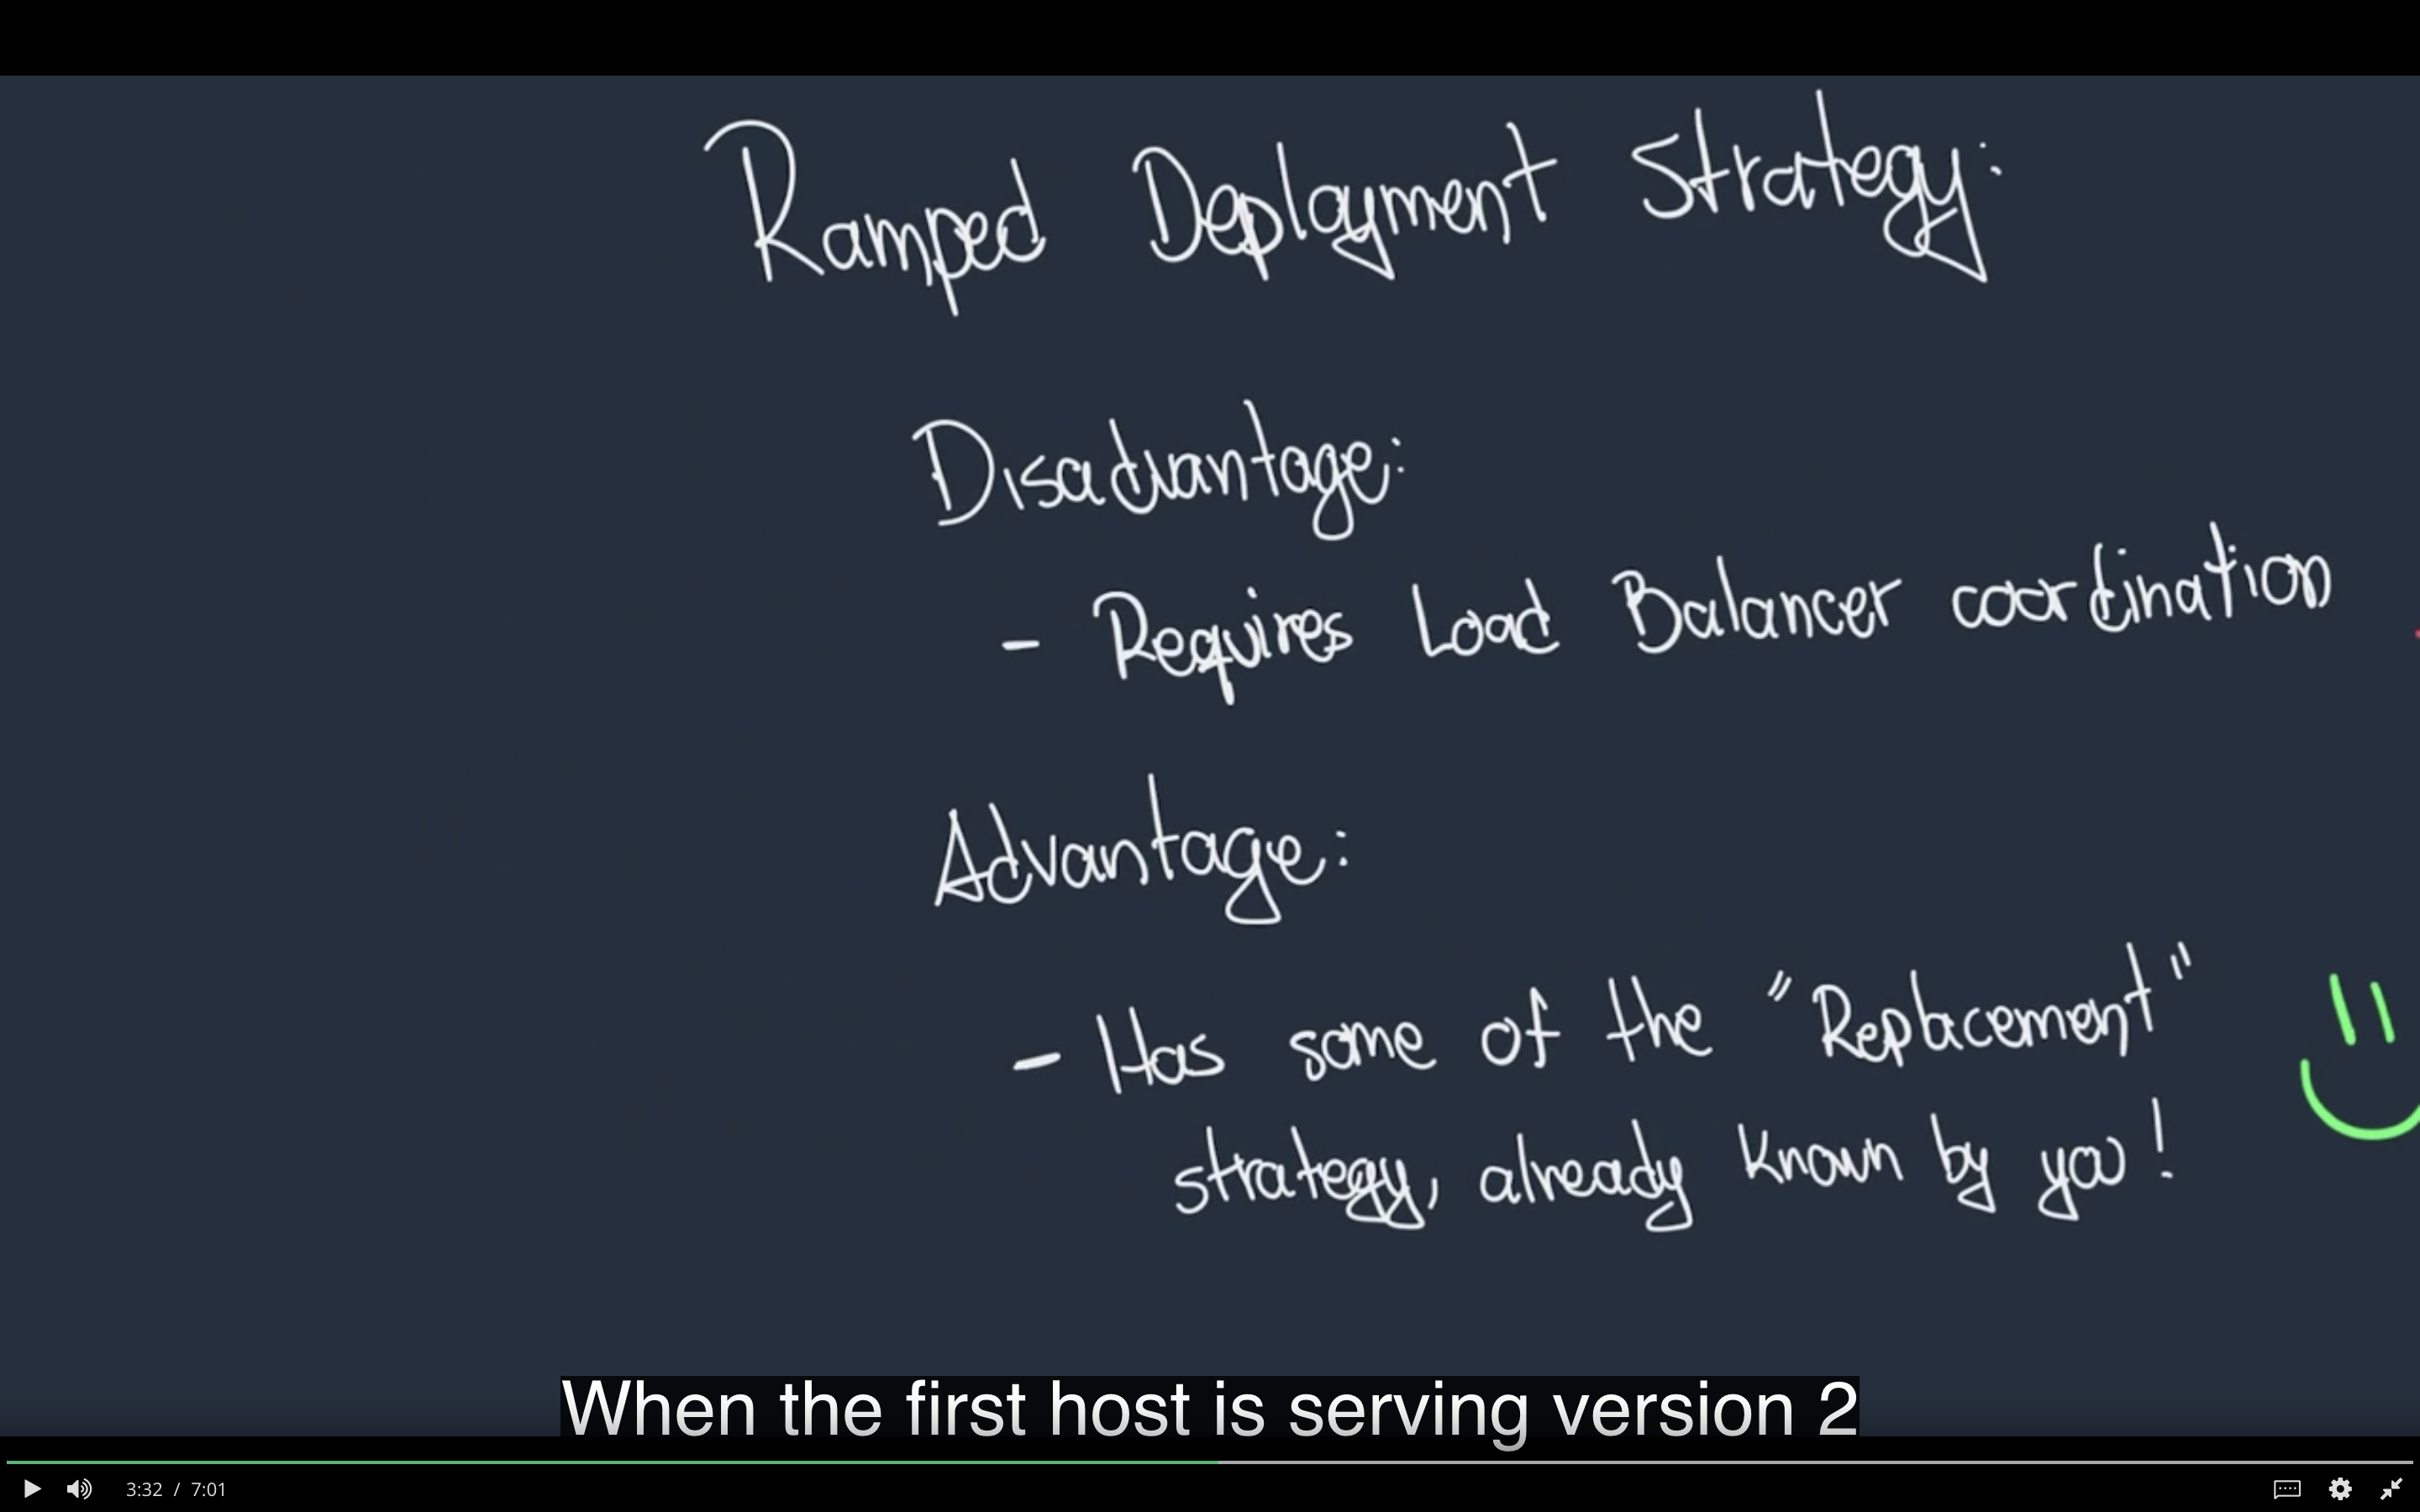 Ramped Deployment Strategy:
Disadvantage:
- Requires Load Balancer coordination
Advantage:
- Has some of the "Replacement"
strategy, already known by you!
When the first host is serving version 2
3:32 / 7:01